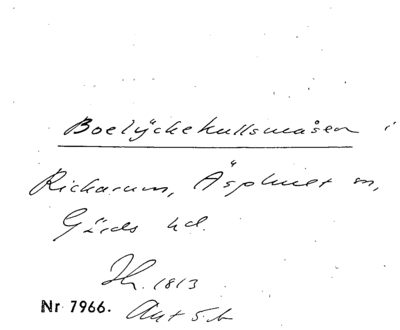 Boelyckekullsmåsen i
Rickarum, Äsphult sn,
Gärds hd.
Hr. 1813
Nr 7966. Akt 5.b